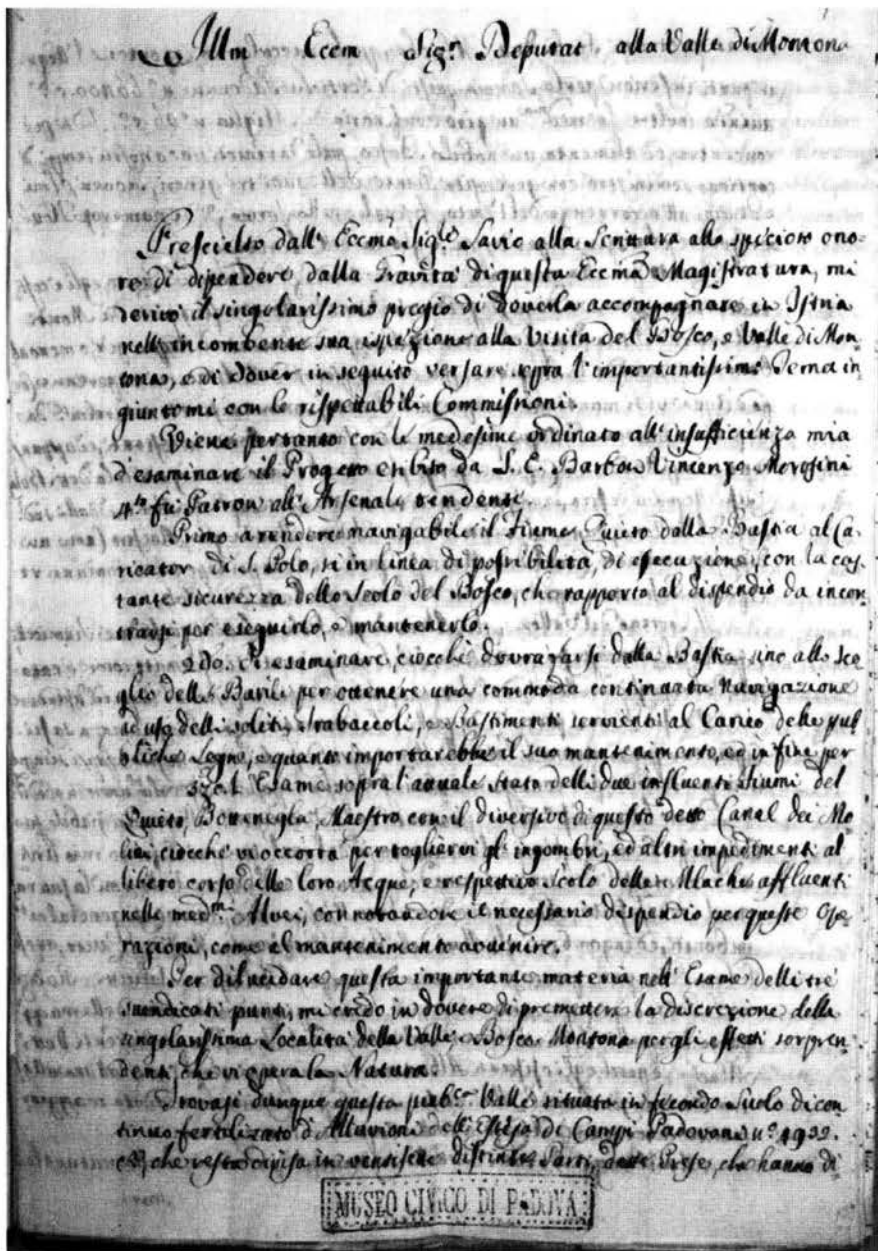 Illm Eccm Sig.ri Deputat alla Valle di Montona
Prescielto dall' Eccmo Sig.re Savio alla Scrittura allo specioso ono-
re di dipendere dalla Gravità di questa Eccma Magistratura, mi
derivò il singolarissimo pregio di doverla accompagnare in Istria
nell' incombente sua ispezione alla Visita del Bosco, e Valle di Mon-
tona, e di dover in seguito versare sopra l'importantissimo Tema in-
giuntomi con le rispettabili Commissioni.
Viene pertanto con le medesime ordinato all' insufficienza mia
d'esaminare il Progetto esibito da S. E. Barbon Vincenzo Morosini
4.to fù Patron all' Arsenale tendente.
Primo a rendere navigabile il Fiume Quieto dalla Bastia al Ca-
ricator di S. Polo, sì in linea di possibilità, di esecuzione, con la cos-
tante sicurezza dello Scolo del Bosco, che rapporto al dispendio da incon-
trarsi per eseguirlo, e mantenerlo.
2do. Di esaminare, ciocchè dovrà farsi dalla Bastia sino allo Sco-
glio delli Barili per ottenere una commoda continuata Navigazione
ad uso delli soliti Trabaccoli, e Bastimenti servienti al Carico delle pub-
bliche Legne, e quanto importarebbe il suo mantenimento, ed in fine per
3zo. l' Esame sopra l'annuale stato delli due influenti Fiumi del
Quieto, Bottenegla, Maestro con il diversivo di questo detto Canal dei Mo-
lini, ciocchè vi occorra per togliervi gl' ingombri, ed altri impedimenti al
libero corso delle loro Acque, e respettivo Scolo delle affluenti
nelli med.mi Alvei, connotandone il necessario dispendio per queste Ope-
razioni, come al mantenimento avvenire.
Per dilucidare questa importante materia nell' Esame delli tré
sunindicati punti, mi credo in dovere di premettere la discrezione della
singolarissima Località della Valle, e Bosco Montona per gli effetti sorpren-
denti, che vi opera la Natura.
Trovasi dunque questa pub.ca Valle situata in fecondo Suolo di con-
tinuo fertilizato d'Alluvioni dell' Estesa di Campi Padovani n.o 1932.
che resta divisa in ventisette distinte Parti, dette Prese, che hanno di-
MUSEO CIVICO DI PADOVA